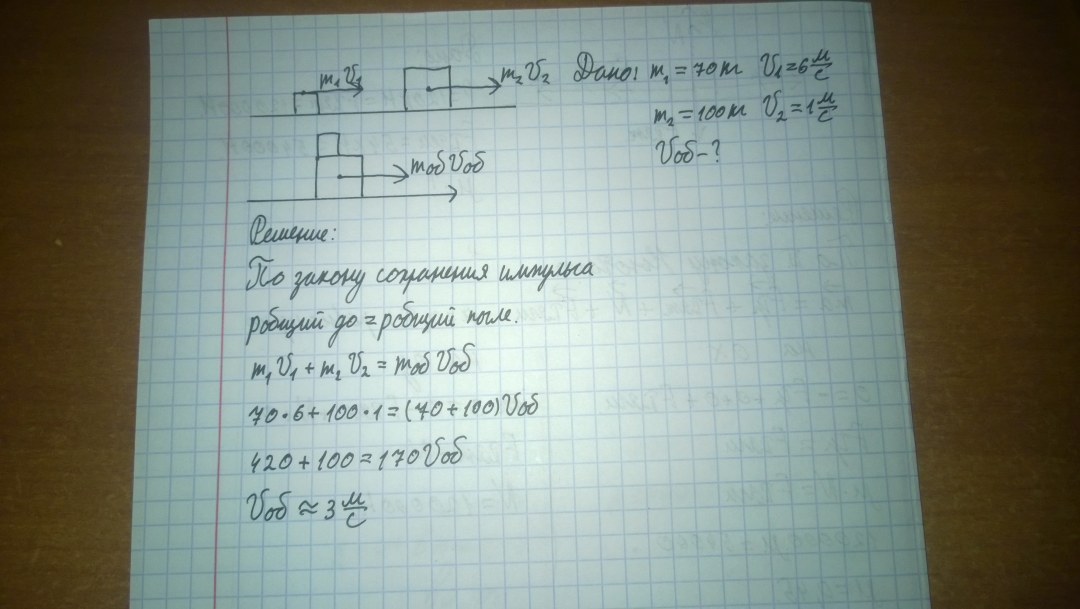 m₁V₁
m₂V₂
Дано: m₁ = 70кг V₁=6 м/с
m₂ = 100кг V₂ = 1 м/с
Vоб-?
mобVоб
Решение:
По закону сохранения импульса
pобщий до = pобщий после.
m₁V₁ + m₂V₂ = mобVоб
70·6+100·1=(70+100)Vоб
420+100=170Vоб
Vоб ≈ 3 м/с